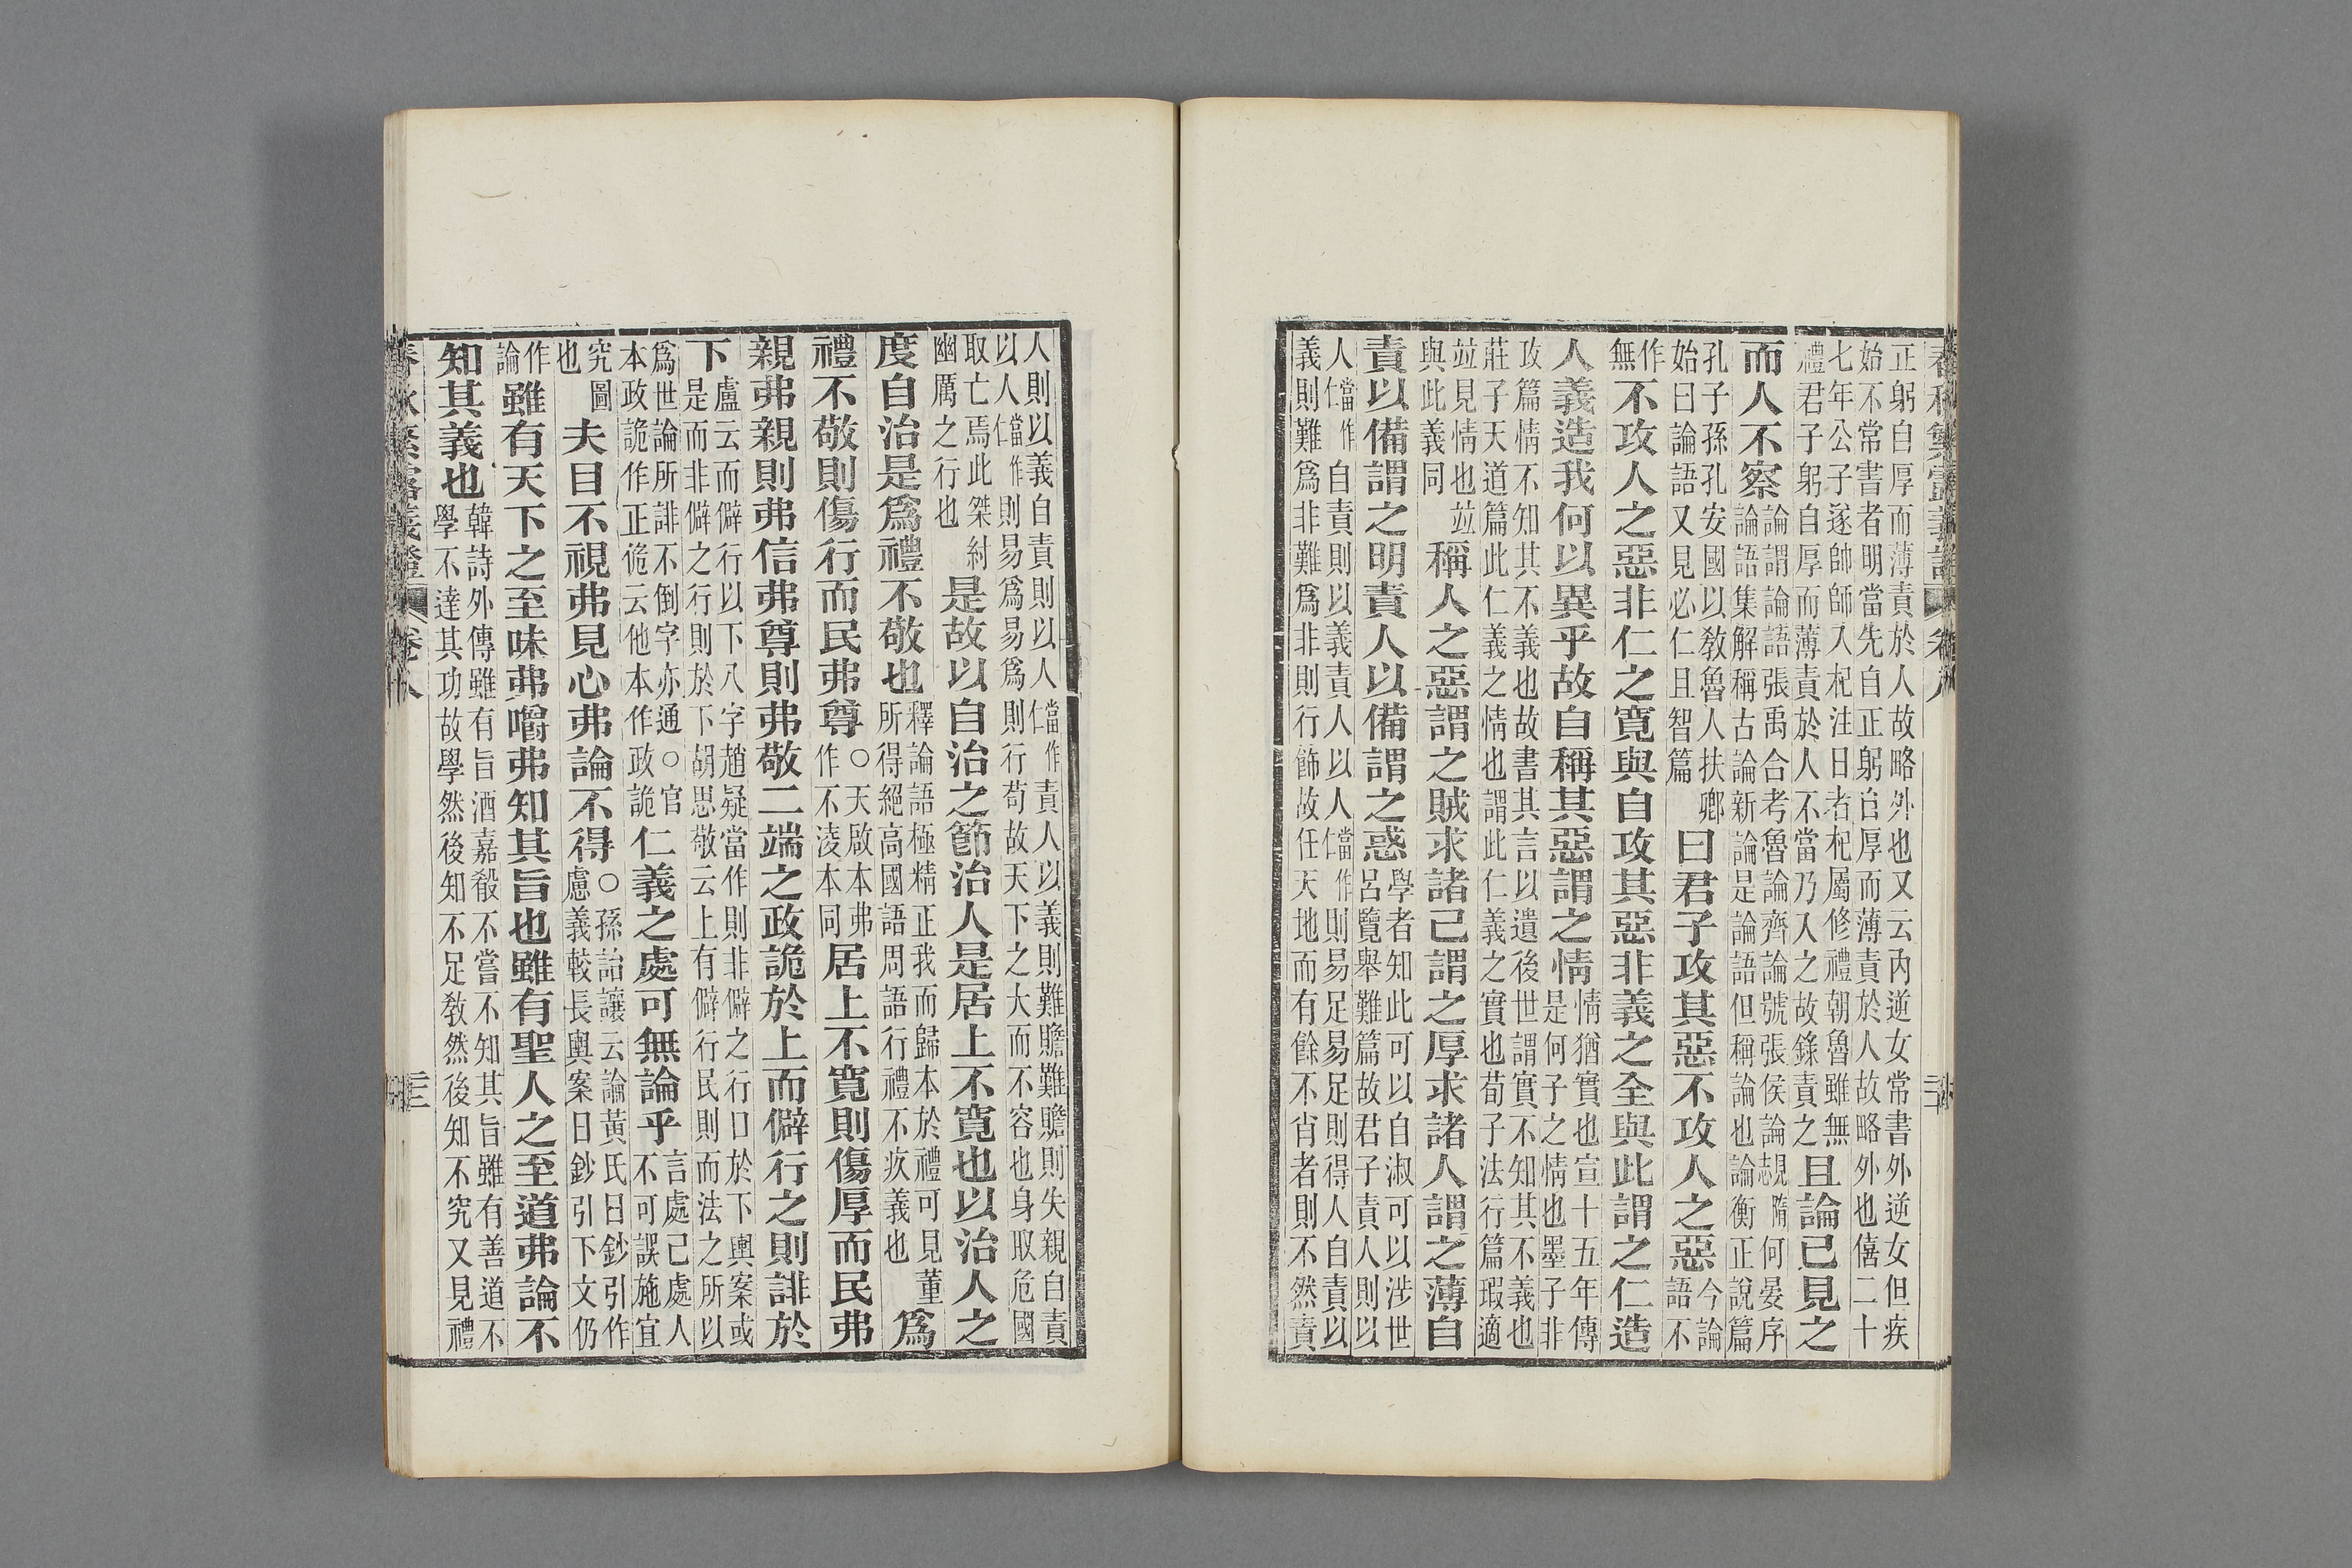 春秋繁露義證 卷八
正躬自厚而薄責於人故略外也又云內逆女常書外逆女但疾
始不常書者明當先自正躬自厚而薄責於人故略外也僖二十
七年公子遂帥師入杞注日者杞屬修禮朝魯雖無
禮君子躬自厚而薄責於人不當乃入之故錄責之
且論已見之
而人不察
論謂論語張禹合考魯論齊論號張侯論見隋志何晏序
論語集解稱古論新論是論語但稱論也論衡正說篇
孔子孫孔安國以敎魯人扶鄉
始曰論語又見必仁且智篇
曰君子攻其惡不攻人之惡
今論
語不
作
無
不攻人之惡非仁之寬與自攻其惡非義之全與此謂之仁造
人義造我何以異乎故自稱其惡謂之情
情猶實也宣十五年傳
是何子之情也墨子非
攻篇情不知其不義也故書其言以遺後世謂實不知其不義也
莊子天道篇此仁義之情也謂此仁義之實也荀子法行篇瑕適
竝見情也竝
與此義同
稱人之惡謂之賊求諸己謂之厚求諸人謂之薄自
責以備謂之明責人以備謂之惑
學者知此可以自淑可以涉世
呂覽舉難篇故君子責人則以
人當作仁自責則以義責人以人當作仁則易足易足則得人自責以
義則難爲非難爲非則行飾故任天地而有餘不肖者則不然責
人則以義自責則以人當作仁責人以義則難贍難贍則失親自責
以人當作仁則易爲易爲則行苟故天下之大而不容也身取危國
取亡焉此桀紂
幽厲之行也
是故以自治之節治人是居上不寬也以治人之
度自治是爲禮不敬也
釋論語極精正我而歸本於禮可見董
所得絕高國語周語行禮不疚義也
爲
禮不敬則傷行而民弗尊
○天啟本弗
作不淩本同
居上不寬則傷厚而民弗
親弗親則弗信弗尊則弗敬二端之政詭於上而僻行之則誹於
下
盧云而僻行以下八字趙疑當作則非僻之行口於下輿案或
是而非僻之行則於下胡思敬云上有僻行民則而法之所以
爲世論所誹不倒字亦通○官
本政詭作正佹云他本作政詭
仁義之處可無論乎
言處己處人
不可誤施宜
究圖
也
夫目不視弗見心弗論不得
○孫詒讓云論黃氏日鈔引作
慮義較長輿案日鈔引下文仍
作
論
雖有天下之至味弗嚼弗知其旨也雖有聖人之至道弗論不
知其義也
韓詩外傳雖有旨酒嘉殽不嘗不知其旨雖有善道不
學不達其功故學然後知不足敎然後知不究又見禮
春秋繁露義證 卷八